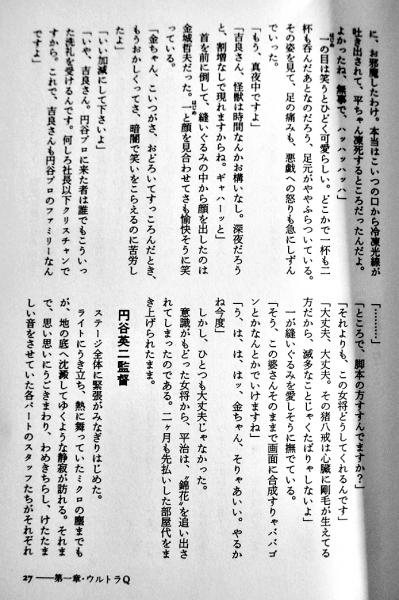 に、お邪魔したわけ、本当はこいつの口から冷凍光線が
吐き出されて、平ちゃん凍死するところだったんだよ。
よかったね、無事で、ハッハッハッハ」
一の目は笑うとひどく可愛らしい。どこかで一杯も二
杯も呑んだあとなのだろう、足元がややふらついている。
その姿を見て、足の痛みも、悪戯への怒りも急にしずん
でいった。
「もう、真夜中ですよ」
「吉良さん、怪獣は時間なんかお構いなし。深夜だろう
と、割増なしで現れますからね。ギャハーッと」
首を前に倒して、縫いぐるみの中から顔を出したのは
金城哲夫だった。一と顔を見合わせてさも愉快そうに笑
っている。
「金ちゃん、こいつがさ、おどろいてすっころんだとき、
もうおかしくってさ、暗闇で笑いをこらえるのに苦労し
たよ」
「いい加減にして下さいよ」
「いや、吉良さん。円谷プロに来た者は誰でもこういっ
た洗礼を受けるんです。何しろ社長以下クリスチャンで
すから。これで、吉良さんも円谷プロのファミリーなん
ですよ」
「………」
「ところで、脚本の方すすんでますか？」
「それよりも、この女将どうしてくれるんです」
「大丈夫、大丈夫。その猪八戒は心臓に剛毛が生えてる
方だから、滅多なことじゃくたばりゃしないよ」
一が縫いぐるみを愛しそうに撫でている。
「そう、この婆さんそのままで画面に合成すりゃババゴ
ンとかなんとかでいけますね」
「う、は、は、はッ、金ちゃん、そりゃあいい。やるか
ね今度」
しかし、ひとつも大丈夫じゃなかった。
意識がもどった女将から、平治は、〝鍾花〟を追い出さ
れてしまったのである。二ヶ月も先払いした部屋代をま
き上げられたまま。
円谷英二監督
ステージ全体に緊張がみなぎりはじめた。
ライトにうき立ち、熱に舞っていたミクロの塵までも
が、地の底へ沈澱してゆくような静寂が訪れる。それま
で、思い思いにうごきまわり、わめきちらし、けたたま
しい音をさせていた各パートのスタッフたちがそれぞれ
27――第一章・ウルトラQ